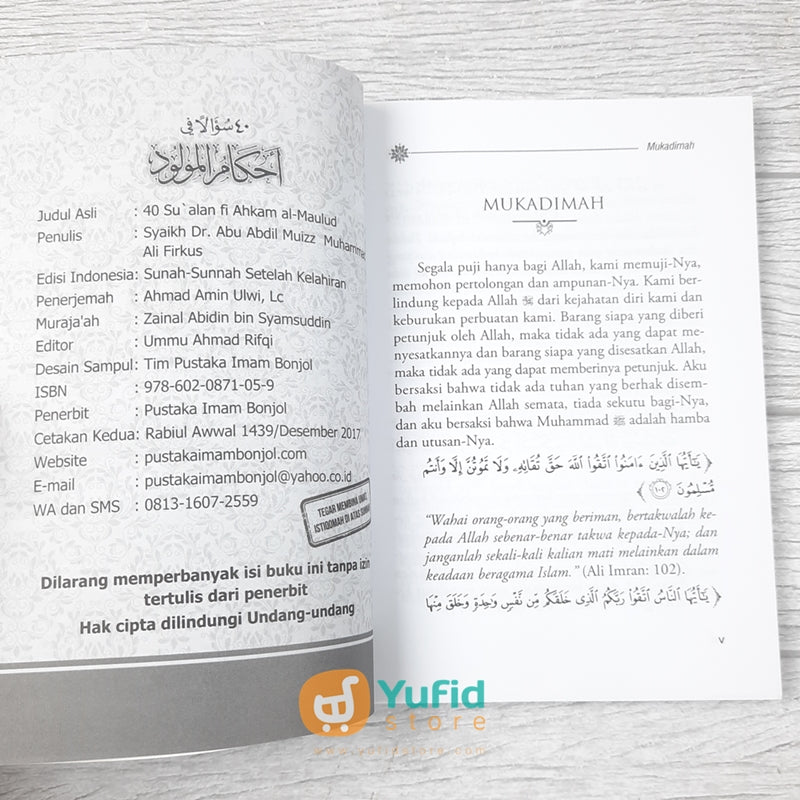 ٤٠ سؤالا في
أحكام المولود
Judul Asli : 40 Su`alan fi Ahkam al-Maulud
Penulis : Syaikh Dr. Abu Abdil Muizz Muhammad
Ali Firkus
Edisi Indonesia: Sunah-Sunnah Setelah Kelahiran
Penerjemah : Ahmad Amin Ulwi, Lc
Muraja'ah : Zainal Abidin bin Syamsuddin
Editor : Ummu Ahmad Rifqi
Desain Sampul: Tim Pustaka Imam Bonjol
ISBN : 978-602-0871-05-9
Penerbit : Pustaka Imam Bonjol
Cetakan Kedua: Rabiul Awwal 1439/Desember 2017
Website : pustakaimambonjol.com
E-mail : pustakaimambonjol@yahoo.co.id
WA dan SMS : 0813-1607-2559
TEGAR MEMBINA UMAT,
ISTIQOMAH DI ATAS SUNNAH
Dilarang memperbanyak isi buku ini tanpa izin
tertulis dari penerbit
Hak cipta dilindungi Undang-undang
Mukadimah
MUKADIMAH
Segala puji hanya bagi Allah, kami memuji-Nya,
memohon pertolongan dan ampunan-Nya. Kami ber-
lindung kepada Allah ﷻ dari kejahatan diri kami dan
keburukan perbuatan kami. Barang siapa yang diberi
petunjuk oleh Allah, maka tidak ada yang dapat me-
nyesatkannya dan barang siapa yang disesatkan Allah,
maka tidak ada yang dapat memberinya petunjuk. Aku
bersaksi bahwa tidak ada tuhan yang berhak disem-
bah melainkan Allah semata, tiada sekutu bagi-Nya,
dan aku bersaksi bahwa Muhammad ﷺ adalah hamba
dan utusan-Nya.
﴿ يَٰٓأَيُّهَا ٱلَّذِينَ ءَامَنُوا۟ ٱتَّقُوا۟ ٱللَّهَ حَقَّ تُقَاتِهِۦ وَلَا تَمُوتُنَّ إِلَّا وَأَنتُم
مُّسْلِمُونَ ١٠٢ ﴾
“Wahai orang-orang yang beriman, bertakwalah ke-
pada Allah sebenar-benar takwa kepada-Nya; dan
janganlah sekali-kali kalian mati melainkan dalam
keadaan beragama Islam.” (Ali Imran: 102).
﴿ يَٰٓأَيُّهَا ٱلنَّاسُ ٱتَّقُوا۟ رَبَّكُمُ ٱلَّذِى خَلَقَكُم مِّن نَّفْسٍ وَٰحِدَةٍ وَخَلَقَ مِنْهَا
v
Yufid
Store
www.yufidstore.com